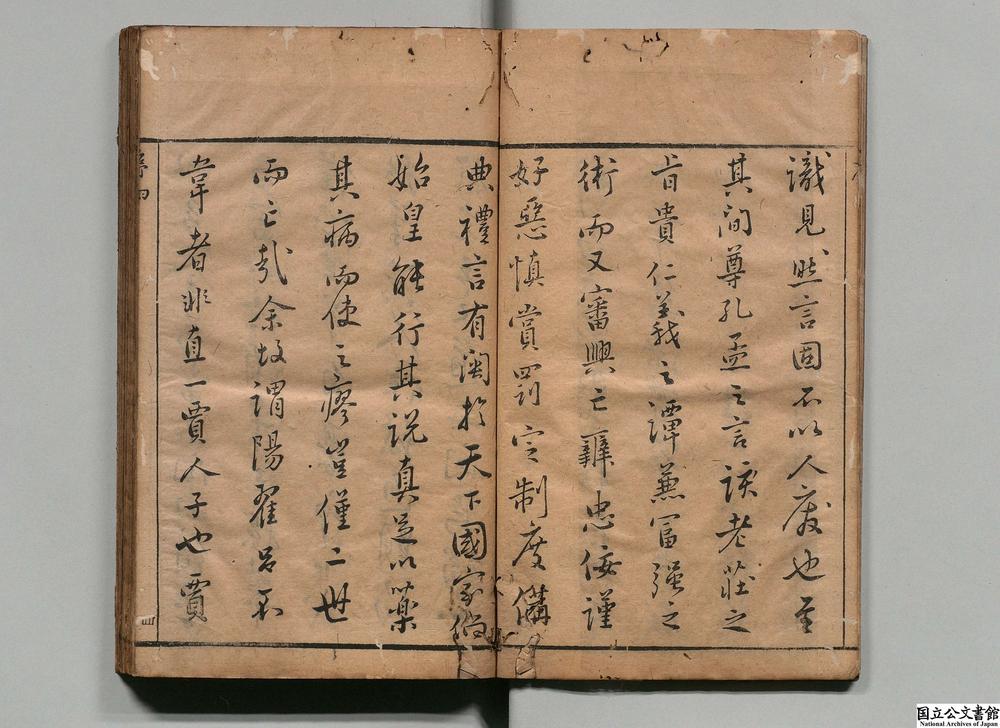 識見然言固不以人廢也至
其間尊孔孟之言談老莊之
旨貴仁義之譚兼富強之
術而又審興亡辨忠佞謹
好惡慎賞罰定制度備
典禮言有關於天下國家倘
始皇能行其說真足以藥
其病而使之瘳豈僅二世
而亡哉余故謂陽翟呂不
韋者非直一賈人子也賈
序四
四
国立公文書館
National Archives of Japan